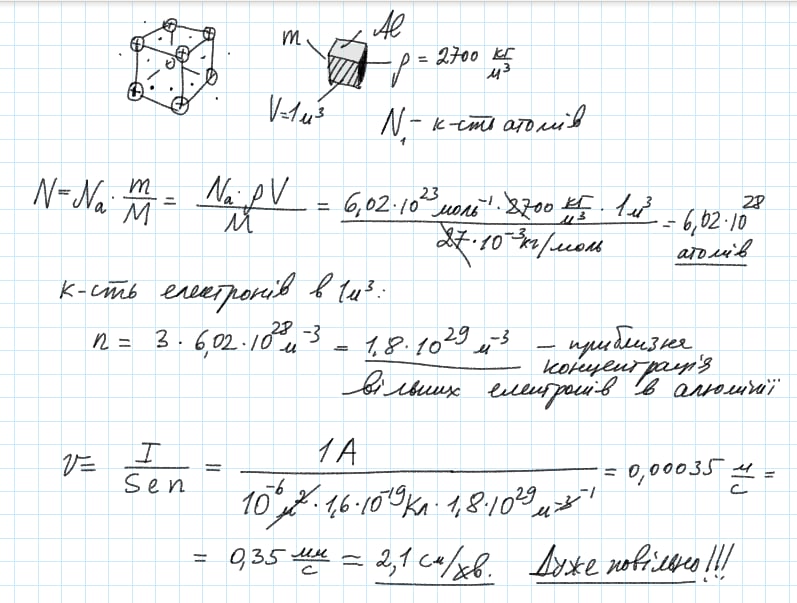 Al
m
ρ = 2700 кг/м³
V=1м³
N₁ - к-сть атомів
N=Nа·m/M = Nа·ρV/M = 6,02·10²³моль⁻¹·2700 кг/м³·1м³/27·10⁻³кг/моль = 6,02·10²⁸
атомів
к-сть електронів в 1м³:
n = 3·6,02·10²⁸м⁻³ = 1,8·10²⁹ м⁻³ — приблизна
концентрація
вільних електронів в алюмінії
v= I/Sen = 1А/10⁻⁶м²·1,6·10⁻¹⁹Кл·1,8·10²⁹м⁻³ ⁻¹ = 0,00035 м/с =
= 0,35 мм/с = 2,1 см/хв. Дуже повільно!!!